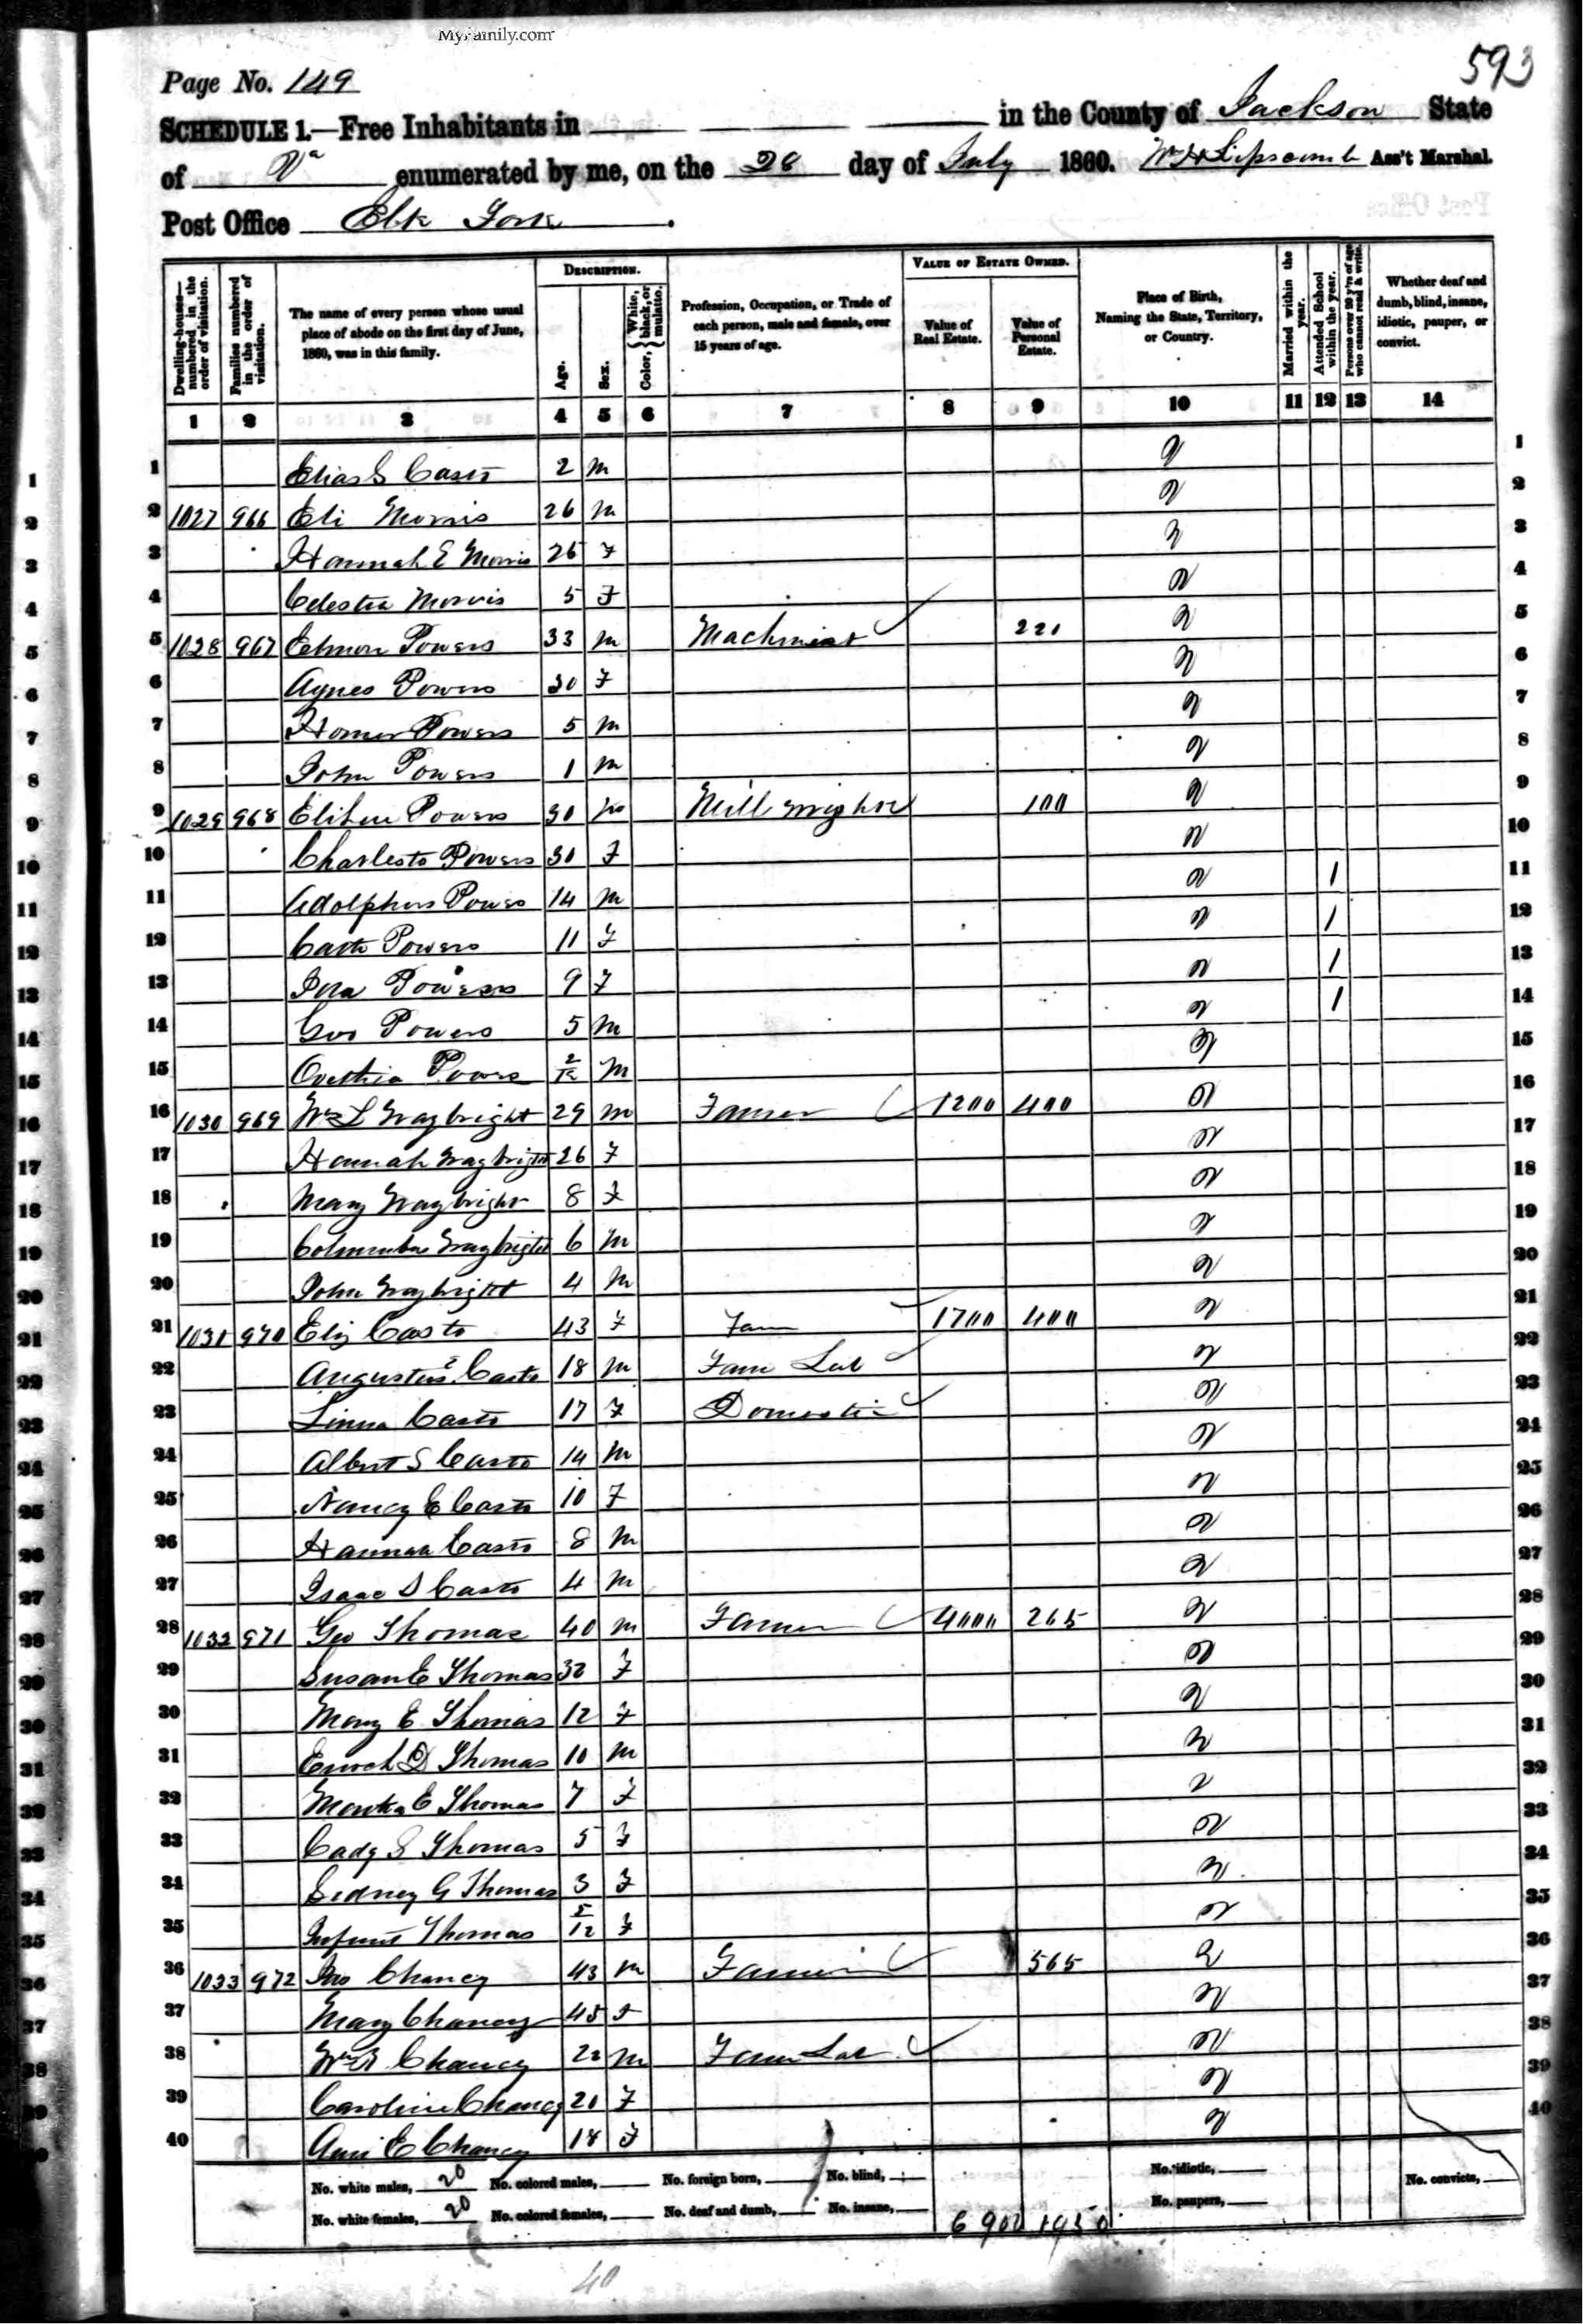 MyFamily.com
593
Page No. 149
SCHEDULE 1.—Free Inhabitants in in the County of Jackson State
of Va enumerated by me, on the 28 day of July 1860. Wm H Lipscomb Ass't Marshal.
Post Office Elk Fork.
DESCRIPTION. VALUE OF ESTATE OWNED.
Dwelling-houses—numbered in the order of visitation.
Families numbered in the order of visitation.
The name of every person whose usual place of abode on the first day of June, 1860, was in this family.
Age.
Sex.
Color, {White, black, or mulatto.
Profession, Occupation, or Trade of each person, male and female, over 15 years of age.
Value of Real Estate.
Value of Personal Estate.
Place of Birth, Naming the State, Territory, or Country.
Married within the year.
Attended School within the year.
Persons over 20 y'rs of age who cannot read & write.
Whether deaf and dumb, blind, insane, idiotic, pauper, or convict.
1 2 3 4 5 6 7 8 9 10 11 12 13 14
1 Elias S Casto 2 m 1
2 1027 966 Eli Morris 26 m 2
3 Hannah E Morris 26 F 3
4 Celestia Morris 5 F 4
5 1028 967 Powers 33 m Machinist 221 5
6 Agnes Powers 30 F 6
7 Homer Powers 5 m 7
8 John Powers 1 m 8
9 1029 968 Elihu Powers 30 m Mill wright 100 9
10 Powers 30 F 10
11 Adolphus Powers 14 m 1 11
12 Powers 11 F 1 12
13 Powers 9 F 1 13
14 Geo Powers 5 m 1 14
15 Powers 2/12 m 15
16 1030 969 Wm L Waybright 29 m Farmer 1200 400 16
17 Hannah Waybright 26 F 17
18 Mary Waybright 8 F 18
19 Columbus Waybright 6 m 19
20 John Waybright 4 m 20
21 1031 970 Eliz Casto 43 F Farm 1700 400 21
22 Augustus Casto 18 m Farm Lab 22
23 Casto 17 F Domestic 23
24 Albert S Casto 14 m 24
25 Nancy E Casto 10 F 25
26 Hannah Casto 8 m 26
27 Isaac D Casto 4 m 27
28 1032 971 Geo Thomas 40 m Farmer 4000 265 28
29 Susan E Thomas 32 F 29
30 Mary E Thomas 12 F 30
31 Enoch D Thomas 10 m 31
32 E Thomas 7 F 32
33 S Thomas 5 F 33
34 Sidney G Thomas 3 F 34
35 Infant Thomas 5/12 F 35
36 1033 972 Jno Chancy 43 m Farmer 565 36
37 Mary Chancy 45 F 37
38 Wm Chancy 22 m Farm Lab 38
39 Caroline Chancy 20 F 39
40 E Chancy 18 F 40
No. white males, 20 No. colored males, No. foreign born, No. blind, No. idiotic, No. convicts,
No. white females, 20 No. colored females, No. deaf and dumb, No. insane, No. paupers,
6900
40